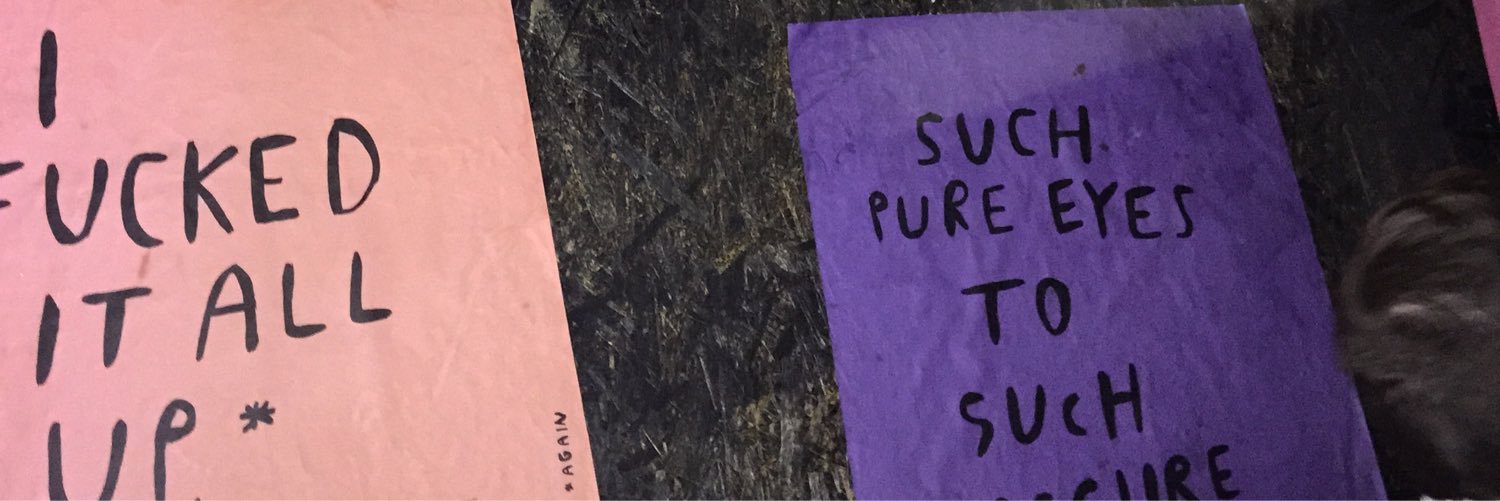 I
FUCKED
IT ALL
UP*
*AGAIN
SUCH
PURE EYES
TO
SUCH